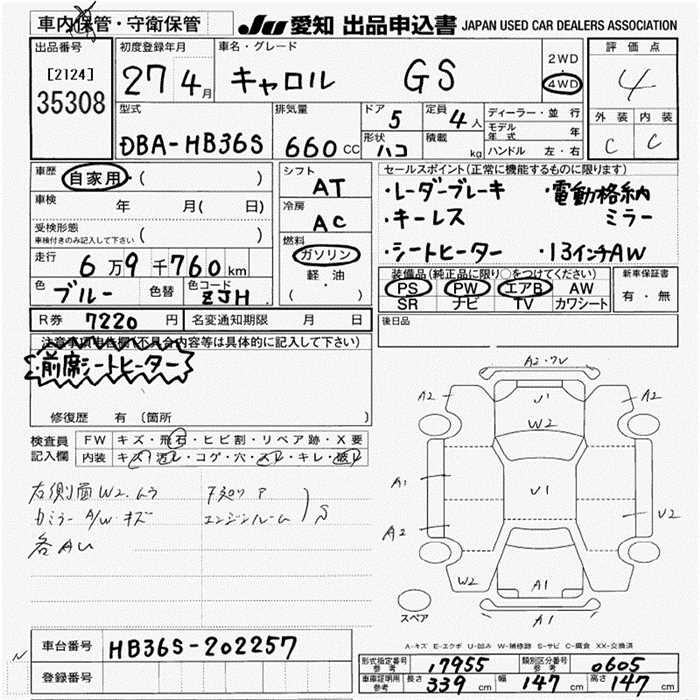 車内保管・守衛保管
JU 愛知 出品申込書 JAPAN USED CAR DEALERS ASSOCIATION
出品番号
[2124]
35308
初度登録年月
27 4月
車名・グレード
キャロル GS
2WD
4WD
評価点
4
外装 内装
C C
型式
DBA-HB36S
排気量
660 CC
ドア 5
形状 ハコ
定員 4人
積載 kg
ディーラー・並行
モデル年式 年
ハンドル 左・右
車歴 自家用・( )
車検 年 月( 日)
受検形態
車検付きのみ記入して下さい ( )
走行
6万9千760km
色 ブルー 色替 色コード ZJH
シフト
AT
冷房
AC
燃料
ガソリン
軽油
( ・ )
セールスポイント(正常に機能するものに限ります)
・レーダーブレーキ ・電動格納
・キーレス ミラー
・シートヒーター ・13インチAW
装備品(純正品に限り○をつけてください)
PS PW エアB AW
SR ナビ TV カワシート
新車保証書
有・無
R券 7220 円 名変通知期限 月 日
後日品
注意事項申告欄(不具合内容等は具体的に記入して下さい)
・前席シートヒーター
修復歴 有 〔箇所 〕
検査員記入欄
FW キズ・飛石・ヒビ割・リペア跡・X要
内装 キズ・汚レ・コゲ・穴・スレ・キレ・破レ
右側面W2.ムラ
カミラー A/W・キズ エンジンルーム S
各AU
A2・フレ
A2 U1 A2
W2
A1 U1
A2 U2
W2 A1
A1
スペア
A-キズ E-エクボ U-凹み W-補修跡 S-サビ C-腐食 XX-交換済
車台番号 HB36S-202257
登録番号
N
形式指定番号 参考 17955 類別区分番号 参考 0605
車庫証明用 参考 長さ 339 cm 幅 147 cm 高さ 147 cm